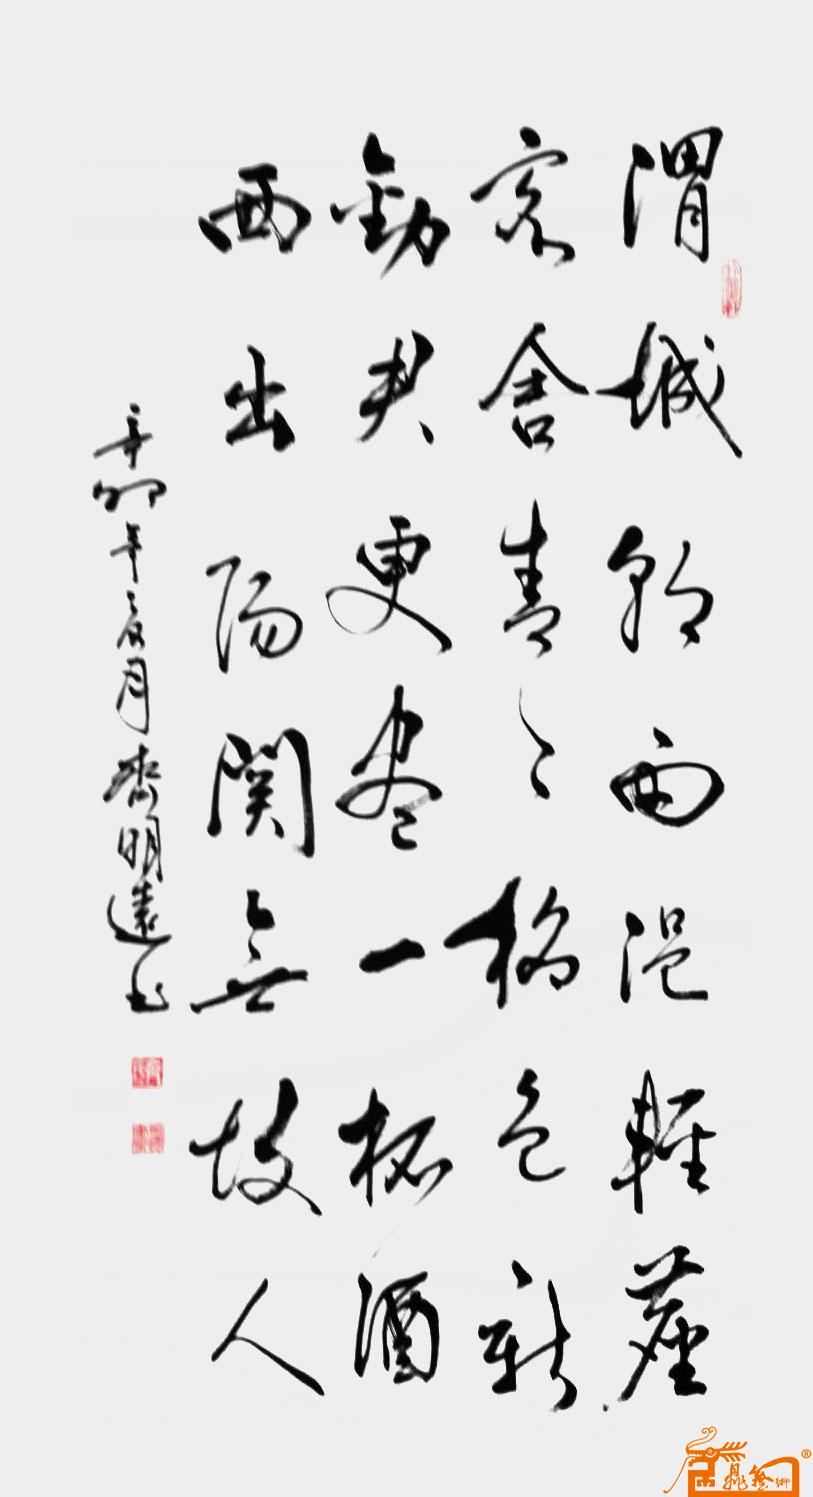 渭城朝雨浥輕塵
客舍青々柳色新
勸君更盡一杯酒
西出陽関無故人
辛卯年夏月齊明遠书